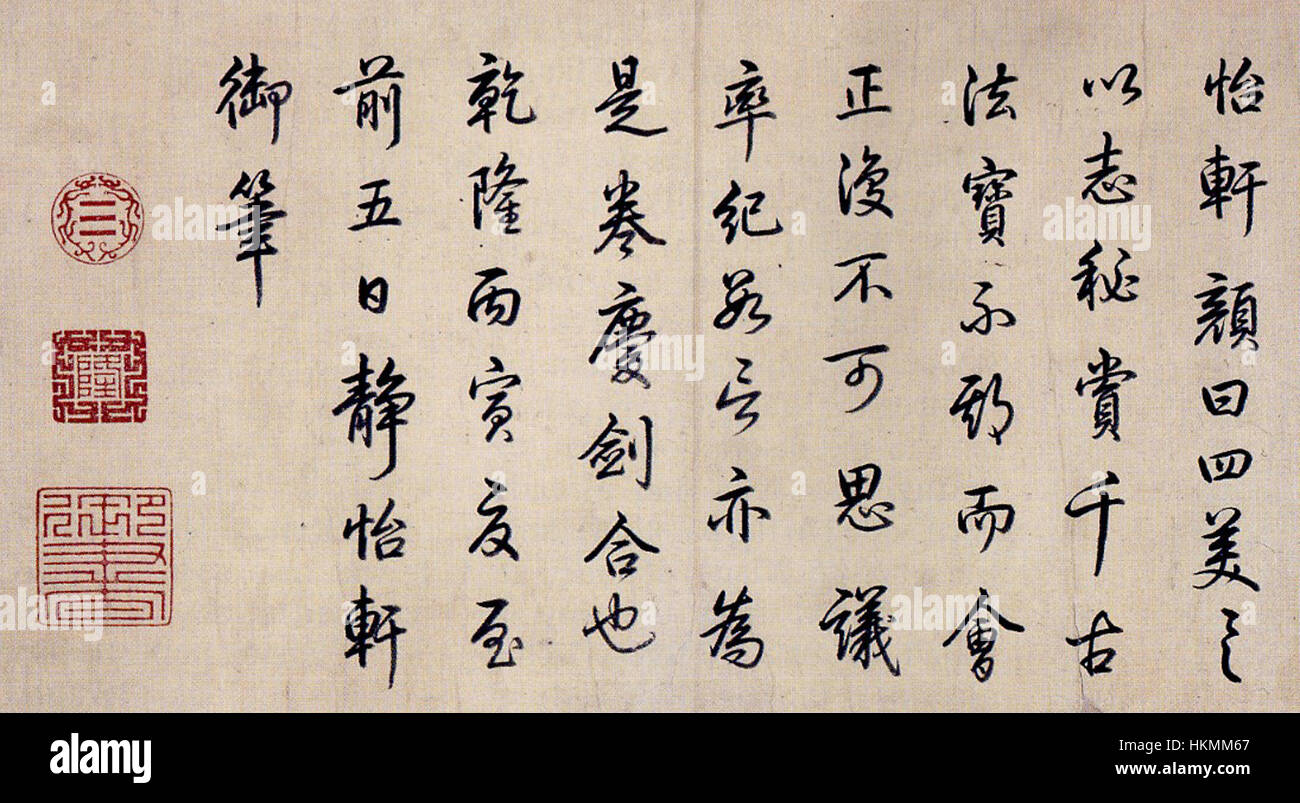 怡軒顏曰四美具
以志秘賞千古
法寶不期而會
正復不可思議
率紀數言亦為
是卷慶劍合也
乾隆丙寅夏至
前五日靜怡軒
御筆
隆
alamy stock photo
alamy stock photo
alamy stock photo
alamy
Image ID: HKMM67
www.alamy.com